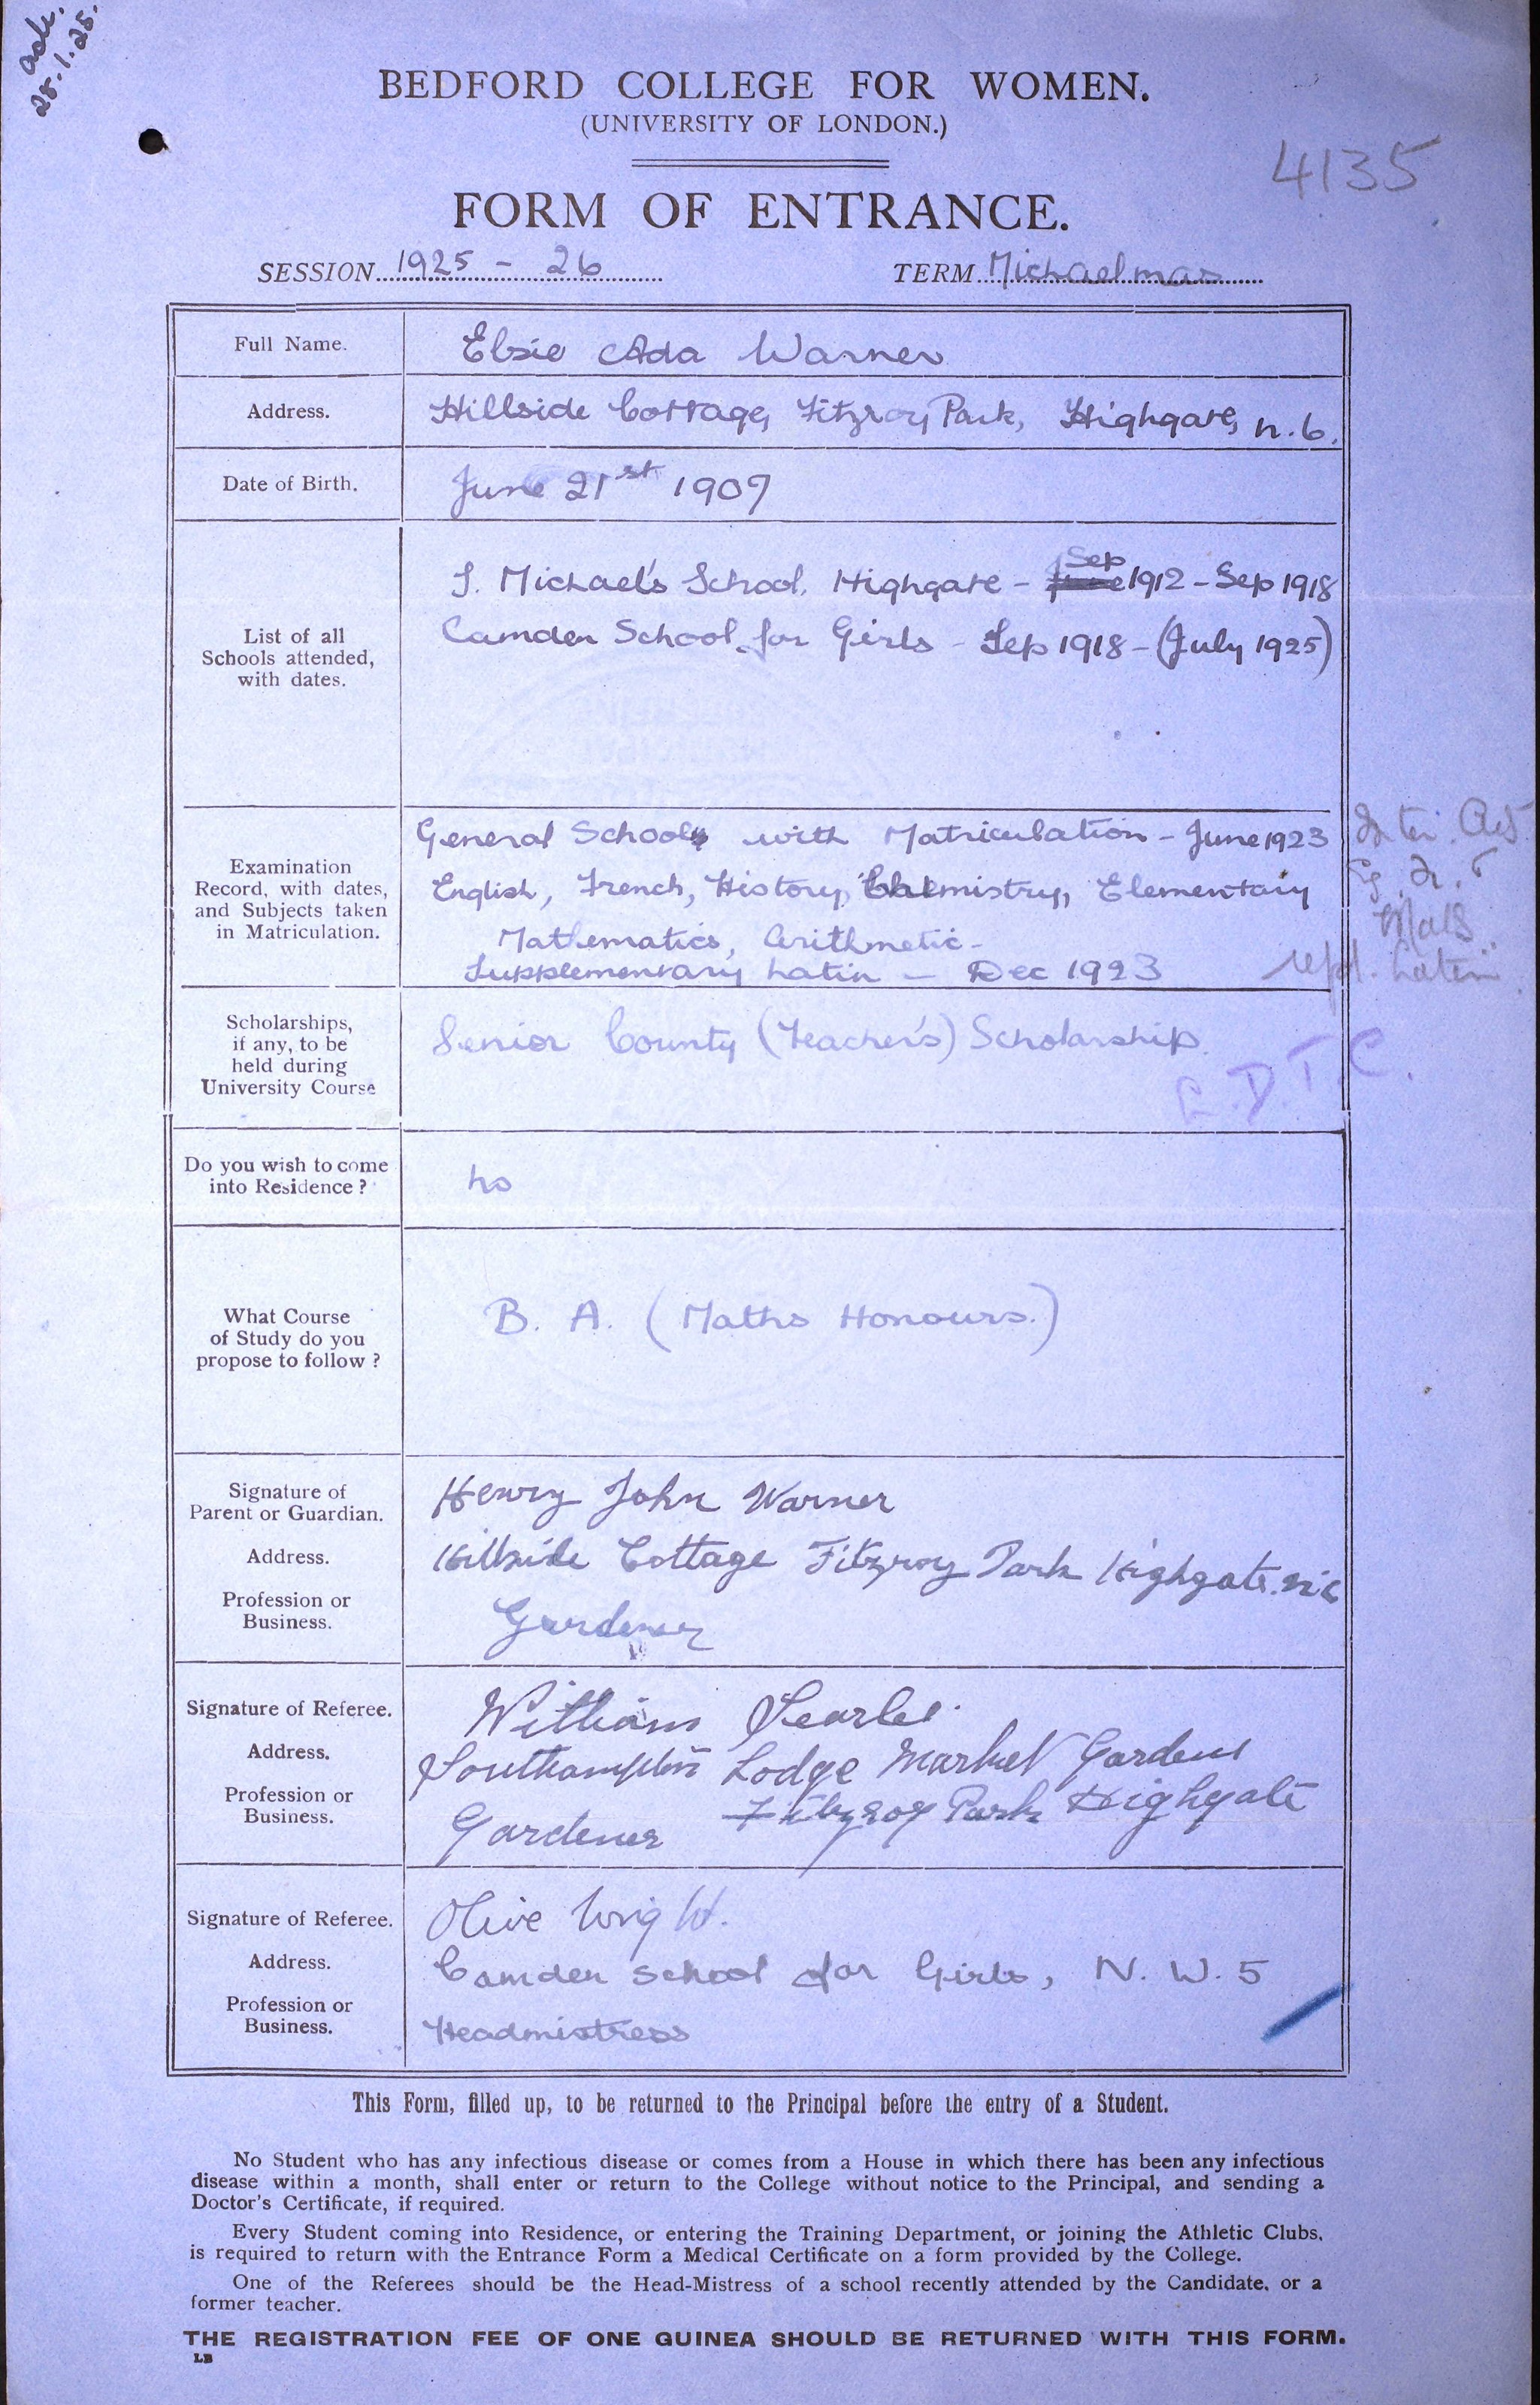 ack.
28.1.25.
BEDFORD COLLEGE FOR WOMEN.
(UNIVERSITY OF LONDON.)
4135
FORM OF ENTRANCE.
SESSION 1925 - 26 TERM Michaelmas
Full Name. Elsie Ada Warner
Address. Hillside Cottage, Fitzroy Park, Highgate, N.6.
Date of Birth. June 21st 1907
List of all
Schools attended,
with dates.
S. Michael's School, Highgate - June Sep 1912 - Sep 1918
Camden School for Girls - Sep 1918 - (July 1925)
Examination
Record, with dates,
and Subjects taken
in Matriculation.
General Schools with Matriculation - June 1923
English, French, History, Chemistry, Elementary
Mathematics, Arithmetic -
Supplementary Latin - Dec 1923
Inter. Arts
Maths
repd. Latin
Scholarships,
if any, to be
held during
University Course
Senior County (Teacher's) Scholarship.
L.D.T.C.
Do you wish to come
into Residence ?
No
What Course
of Study do you
propose to follow ?
B. A. (Maths Honours.)
Signature of
Parent or Guardian.
Henry John Warner
Address.
Hillside Cottage Fitzroy Park Highgate. N 6
Profession or
Business.
Gardener
Signature of Referee.
William Searle.
Address.
Southampton Lodge Market Gardens
Fitzroy Park Highgate
Profession or
Business.
Gardener
Signature of Referee.
Olive Wright.
Address.
Camden School for Girls, N. W. 5
Profession or
Business.
Headmistress
This Form, filled up, to be returned to the Principal before the entry of a Student.
No Student who has any infectious disease or comes from a House in which there has been any infectious
disease within a month, shall enter or return to the College without notice to the Principal, and sending a
Doctor's Certificate, if required.
Every Student coming into Residence, or entering the Training Department, or joining the Athletic Clubs,
is required to return with the Entrance Form a Medical Certificate on a form provided by the College.
One of the Referees should be the Head-Mistress of a school recently attended by the Candidate, or a
former teacher.
THE REGISTRATION FEE OF ONE GUINEA SHOULD BE RETURNED WITH THIS FORM.
LB